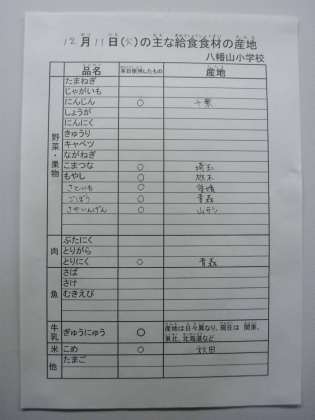 12月11日(火)の主な給食食材の産地
八幡山小学校
品名 本日使用したもの 産地
野菜・果物
たまねぎ
じゃがいも
にんじん ○ 千葉
しょうが
にんにく
きゅうり
キャベツ
ながねぎ
こまつな ○ 埼玉
もやし ○ 栃木
さといも ○ 愛媛
ごぼう ○ 青森
さやいんげん ○
肉
ぶたにく
とりがら
とりにく ○ 青森
魚
さば
さけ
むきえび
牛乳 ぎゅうにゅう ○ 産地は日々異なり、現在は 関東、
東北、北海道など
米 こめ ○ 秋田
他 たまご